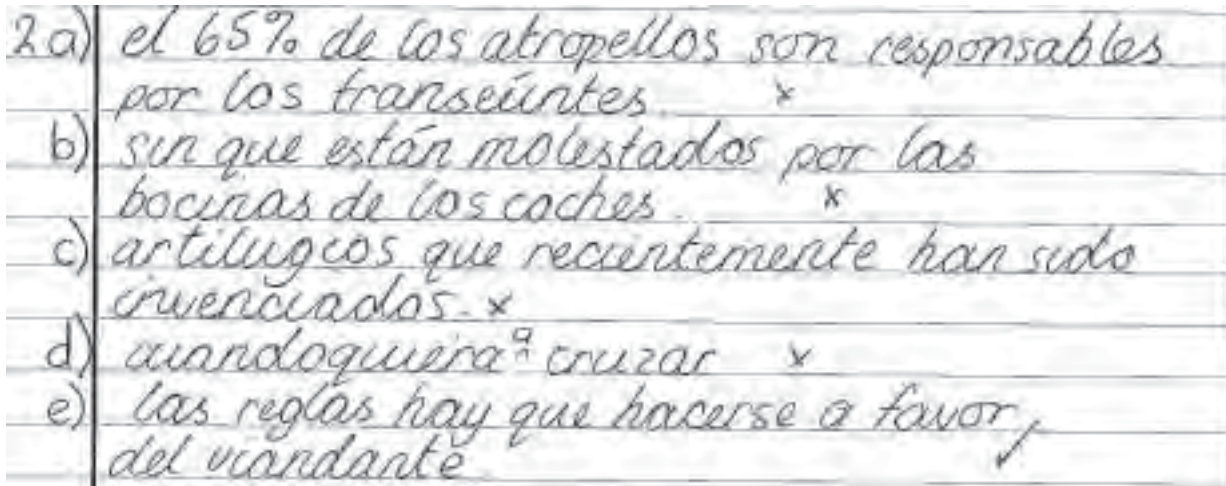 2a) el 65% de los atropellos son responsables
por los transeúntes. x
b) sin que están molestados por las
bocinas de los coches. x
c) artilugios que recientemente han sido
invenciados. x
d) cuandoquiera a cruzar x
e) las reglas hay que hacerse a favor ✓
del viandante.